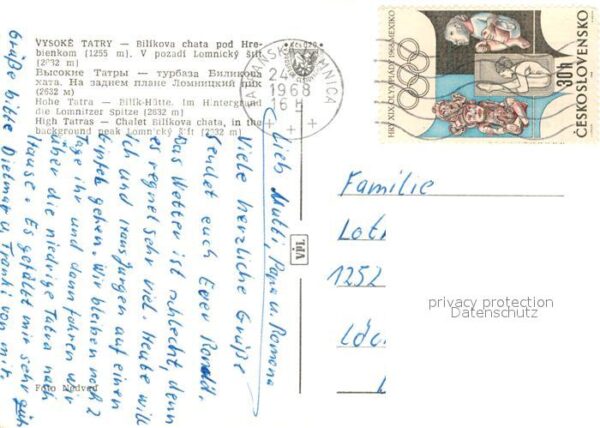 VYSOKÉ TATRY — Bilíkova chata pod Hre-
bienkom (1255 m). V pozadí Lomnický štít
(2632 m)
Высокие Татры — турбаза Биликова
хата. На заднем плане Ломницкий пик
(2632 m)
Hohe Tatra — Bilík-Hütte. Im Hintergrund
die Lomnitzer Spitze (2632 m)
High Tatras — Chalet Bilíkova chata, in the
background peak Lomnický štít (2632 m)
LOMNICA
24
1968
16 H
HRY XIX. OLYMPIÁDY 1968 MEXIKO
30h
ČESKOSLOVENSKO
Lieb Mutti, Papa u. Romona
Viele herzliche Grüße
sendet euch Euer Ronald.
Das Wetter ist schlecht, denn
es regnet sehr viel. Heute will
ich und Hans Jürgen auf einen
Gipfel gehen. Wir bleiben noch 2
Tage hier und dann fahren wir
über die niedrige Tatra nach
Hause. Es gefällt mir sehr gut
Grüße bitte Dietmar u. von mir.
VPL
Foto Nedvěd
Familie
Lot
1252
privacy protection
Datenschutz